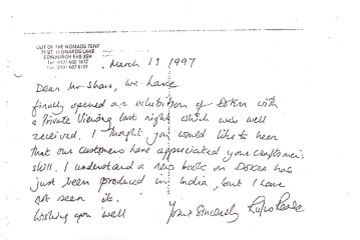 OUT OF THE NOMADS TENT
ST LEONARDS LANE
EDINBURGH
March 11 1997
Dear Mr Shaw, We have
finally opened an exhibition of DOKRA with
a Private Viewing last night which was well
received. I thought you would like to hear
that our customers have appreciated your craftsmen's
skill. I understand a new book on DOKRA has
just been produced in India, but I have
not seen it.
Wishing you well Yours Sincerely